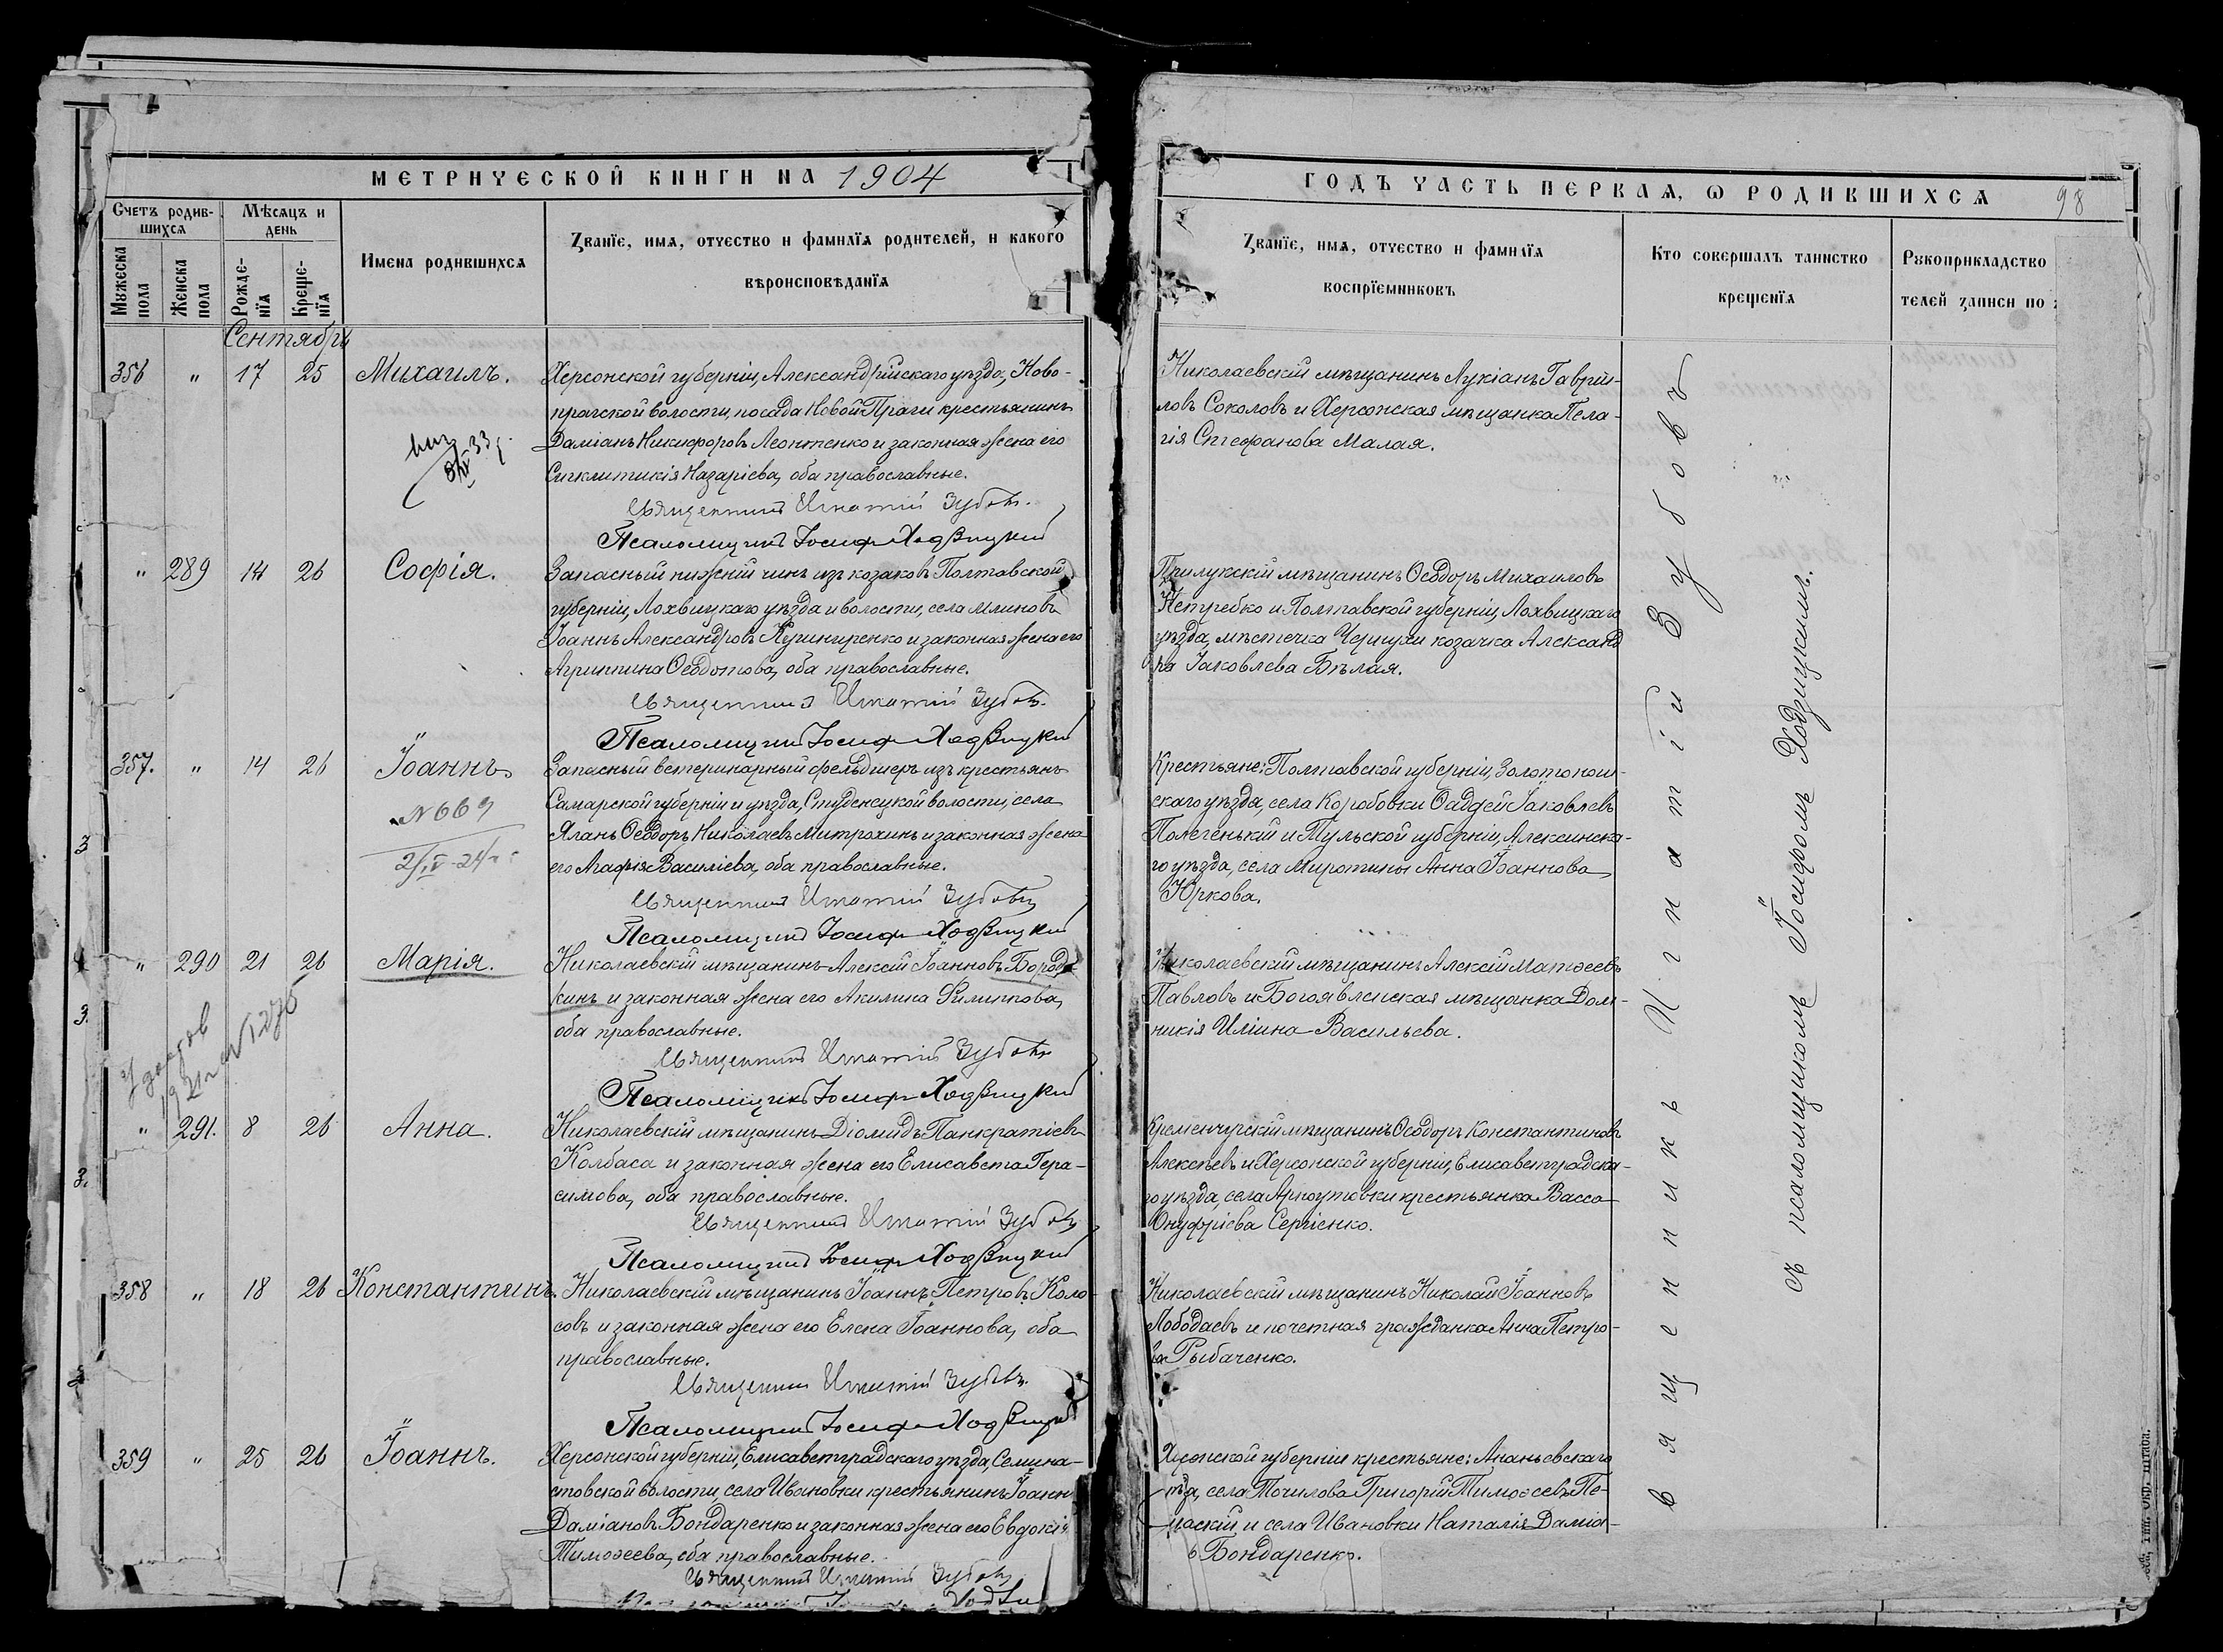 МЕТРИЧЕСКОЙ КНИГИ НА 1904
Счетъ родившихся
Мѣсяцъ и день
Имена родившихся
Званїе, имя, отчество и фамилїя родителей, и какого
вѣроисповѣданїя
Мужеска пола
Женска пола
Рожденїя
Крещенїя
Сентябрь
356 " 17 25 Михаилъ.
Херсонской губерніи, Александрійскаго уѣзда, Ново-
прагской волости, посада Новой Праги крестьянинъ
Даміанъ Никифоровъ Леонтенко и законная жена его
Синклитикія Назаріева, оба православные.
Священникъ Игнатій Зубовъ.
Псаломщикъ Іосифъ Ходзицкій
" 289 14 26 Софія.
Запасный нижній чинъ изъ козаковъ Полтавской
губерніи, Лохвицкаго уѣзда и волости, села Млиновъ
Іоаннъ Александровъ и законная жена его
Агриппина Ѳеодотова, оба православные.
Священникъ Игнатій Зубовъ.
Псаломщикъ Іосифъ Ходзицкій
357. " 14 26 Іоаннъ.
№ 669
Запасный ветеринарный фельдшеръ изъ крестьянъ
Самарской губерніи и уѣзда, Студенецкой волости, села
Яланъ Ѳеодоръ Николаевъ Митрохинъ и законная жена
его Агафія Василіева, оба православные.
Священникъ Игнатій Зубовъ
Псаломщикъ Іосифъ Ходзицкій
" 290 21 26 Марія.
Николаевскій мѣщанинъ Алексій Іоанновъ Бород-
кинъ и законная жена его Акилина Филиппова,
оба православные.
Священникъ Игнатій Зубовъ
Псаломщикъ Іосифъ Ходзицкій
" 291. 8 26 Анна.
Николаевскій мѣщанинъ Діомидъ Панкратіевъ
Колбаса и законная жена его Елисавета Гера-
симова, оба православные.
Священникъ Игнатій Зубовъ
Псаломщикъ Іосифъ Ходзицкій
358 " 18 26 Константинъ.
Николаевскій мѣщанинъ Іоаннъ Петровъ Коло-
совъ и законная жена его Елена Іоаннова, оба
православные.
Священникъ Игнатій Зубовъ.
Псаломщикъ Іосифъ Ходзицкій
359 " 25 26 Іоаннъ.
Херсонской губерніи, Елисаветградскаго уѣзда, Семена-
стовской волости, села Ивановки крестьянинъ Іоаннъ
Даміановъ Бондаренко и законная жена его Евдокія
Тимоѳеева, оба православные.
Священникъ Игнатій Зубовъ
ГОДЪ ЧАСТЬ ПЕРВАЯ, Ѡ РОДИВШИХСЯ
98
Званїе, имя, отчество и фамилїя
воспрїемниковъ
Кто совершалъ таинство
крещенїя
Рукоприкладство
телей записи по
Николаевскій мѣщанинъ Лукіанъ Гаврій-
ловъ Соколовъ и Херсонская мѣщанка Пела-
гія Стефанова Малая.
Прилукскій мѣщанинъ Ѳеодоръ Михаиловъ
Нетребко и Полтавской губерніи, Лохвицкаго
уѣзда, мѣстечка Чернухи козачка Александ
ра Іаковлева Бѣлая.
Крестьяне: Полтавской губерніи, Золотонош-
скаго уѣзда, села Коробовки Ѳаддей Іаковлевъ
Полегенькій и Тульской губерніи, Алексинска-
го уѣзда, села Миротины Анна Іоаннова
Юркова.
Николаевскій мѣщанинъ Алексій Матѳеевъ
Павловъ и Богоявленская мѣщанка Дом-
никія Иліина Васильева.
Кременчугскій мѣщанинъ Ѳеодоръ Константиновъ
Алексѣевъ и Херсонской губерніи, Елисаветградска-
го уѣзда, села Арнаутовки крестьянка Васса
Онуфріева Сергіенко.
Николаевскій мѣщанинъ Николай Іоанновъ
Лободаевъ и почетная гражданка Анна Петро-
ва Рыбаченко.
Херсонской губерніи крестьяне: Ананьевскаго
уѣзда, села Точилова Григорій Тимоѳеевъ
и села Ивановки Наталія Даміа-
Бондаренко.
Священникъ Игнатій Зубовъ
съ псаломщикомъ Іосифомъ Ходзицкимъ.